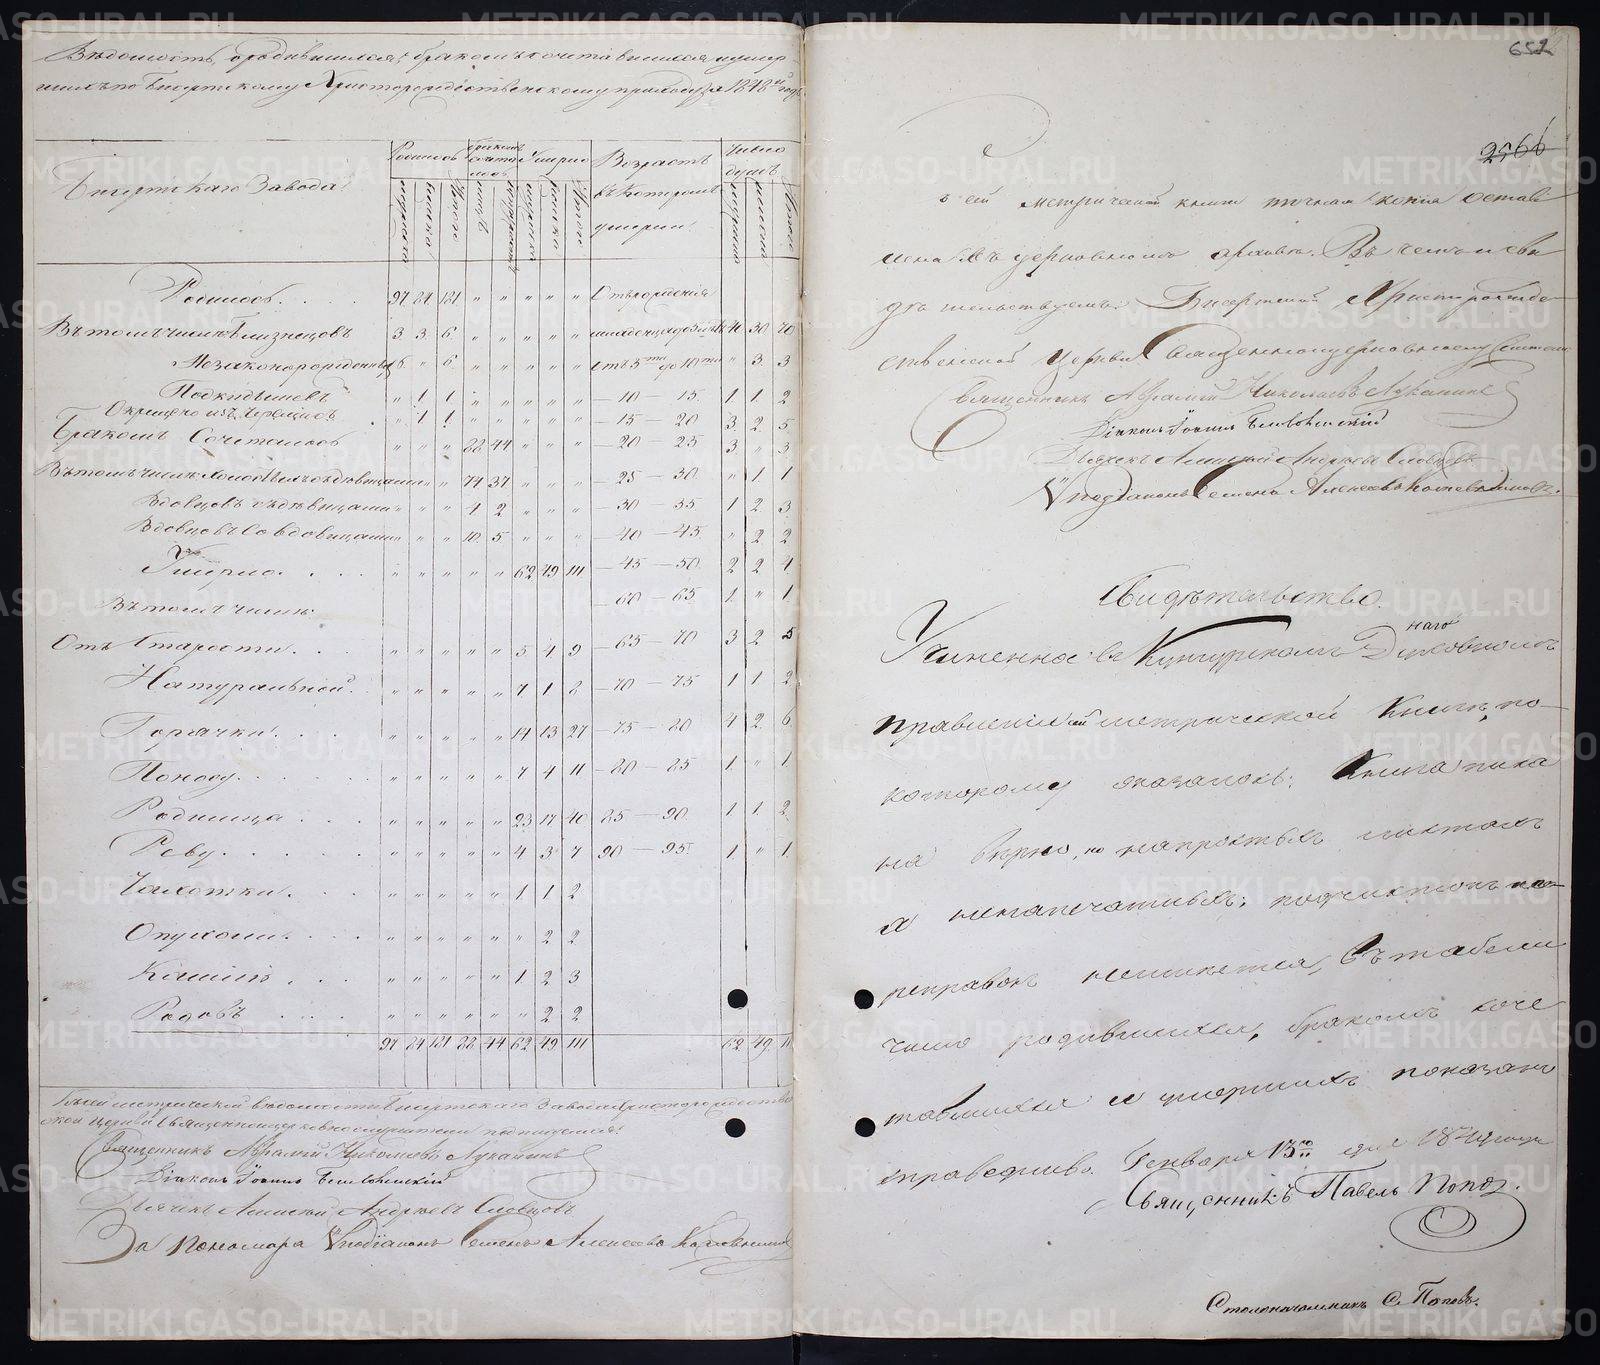 Вѣдомость, о родившихся, бракомъ сочетавшихся и умер
шихъ по Бисертскому Христорождественскому приходу за 1848й годъ
Бисертскаго Завода
Родилось
бракомъ сочеталось
Умерло
Возрастъ въ которомъ умерли
Число душъ
мужеска
женска
Итого
лицъ
мужеска
женска
Итого
мужеска
женска
Итого
Родилось. . . . 97 84 181 „ „ „ „ „ Отъ рожденія
Въ томъ числѣ Близнецовъ 3 3 6 „ „ „ „ „ младенца до 5 лѣтъ 40 30 70
Незаконорожденныхъ 6 „ 6 „ „ „ „ „ отъ 5ти до 10ти „ 3 3
Подкидышевъ „ 1 1 „ „ „ „ „ — 10 — 15. 1. 1. 2
Окрещено изъ Черемисъ „ 1 1 — 15 — 20 3 2 5
Бракомъ Сочеталось „ „ „ 88 44 „ „ „ — 20 — 25 3 „ 3
Въ томъ числѣ холостыхъ съ дѣвицами „ „ 74 37 „ „ „ — 25 — 30. „ 1 1
Вдовцовъ съ дѣвицами „ „ „ 4 2 „ „ „ — 30 — 35 1 2 3
Вдовцовъ со вдовицами „ „ „ 10. 5 „ „ „ — 40 — 45. „ 2 2
Умерло. . . . „ „ „ „ „ 62 49 111 — 45 — 50. 2 2 4
Въ томъ числѣ — 60 — 65. 1. „ 1
Отъ Старости. . „ „ „ „ „ 5 4 9 — 65 — 70 3 2 5
Натуральной. . „ „ „ „ „ 7 1 8 — 70 — 75 1 1 2
Горячки. . . . „ „ „ „ „ 14 13 27 — 75 — 80 4 2 6
Поносу. . . . . „ „ „ „ „ 7 4 11 — 80 — 85 1 „ 1
Родимца. . . . „ „ „ „ „ 23 17 40 85 — 90. 1. 1. 2
Реву. . . . . . „ „ „ „ „ 4 3 7 90 — 95. 1. „ 1
Чахотки. . . . „ „ „ „ „ 1 1 2
Опухоли. . . . „ „ „ „ „ „ 2 2
Кашлю . . . „ „ „ „ „ 1 2 3
Родовъ . . . . „ „ „ „ „ „ 2 2
97 84 181 88 44 62 49 111 62 49. 11
Къ сей метрической вѣдомости Бисертскаго Завода Христорождестве
нской Церкви Священноцерковнослужители подписуемся:
Священникъ Аврамій Николаевъ Луканинъ
Діаконъ Іоаннъ
Дьячекъ Алексѣй Андреевъ Словцовъ
За Пономаря Vподіаконъ Семенъ Алексеевъ
652
2566
Съ сей метрической книги точная копія остав
лена въ церковномъ архивѣ. Въ чемъ и сви
дѣтельствуемъ: Бисертской Христорожде
ственской церкви Священноцерковнослужители
Священникъ Аврамій Николаевъ Луканинъ
Діаконъ Іоаннъ
Дьячекъ Алексѣй Андреевъ Словцовъ
Vподіаконъ Семенъ Алексеевъ
Свидѣтельство.
Учиненно въ Кунгурскомъ Духовномъ
наго
Правленіи сей метрической Книги, по
которому оказалось: Книга писа
на вѣрно, но на простыхъ листахъ
а не на печатныхъ; подчистокъ и по
правокъ не имѣется, въ табели
число родившихся, бракомъ соче
тавшихся и умершихъ показано
справедливо. Генваря 13го дня 1849 года
Священникъ Павелъ Попов.
Столоначальникъ С. Поповъ.
METRIKI.GASO-URAL.RU